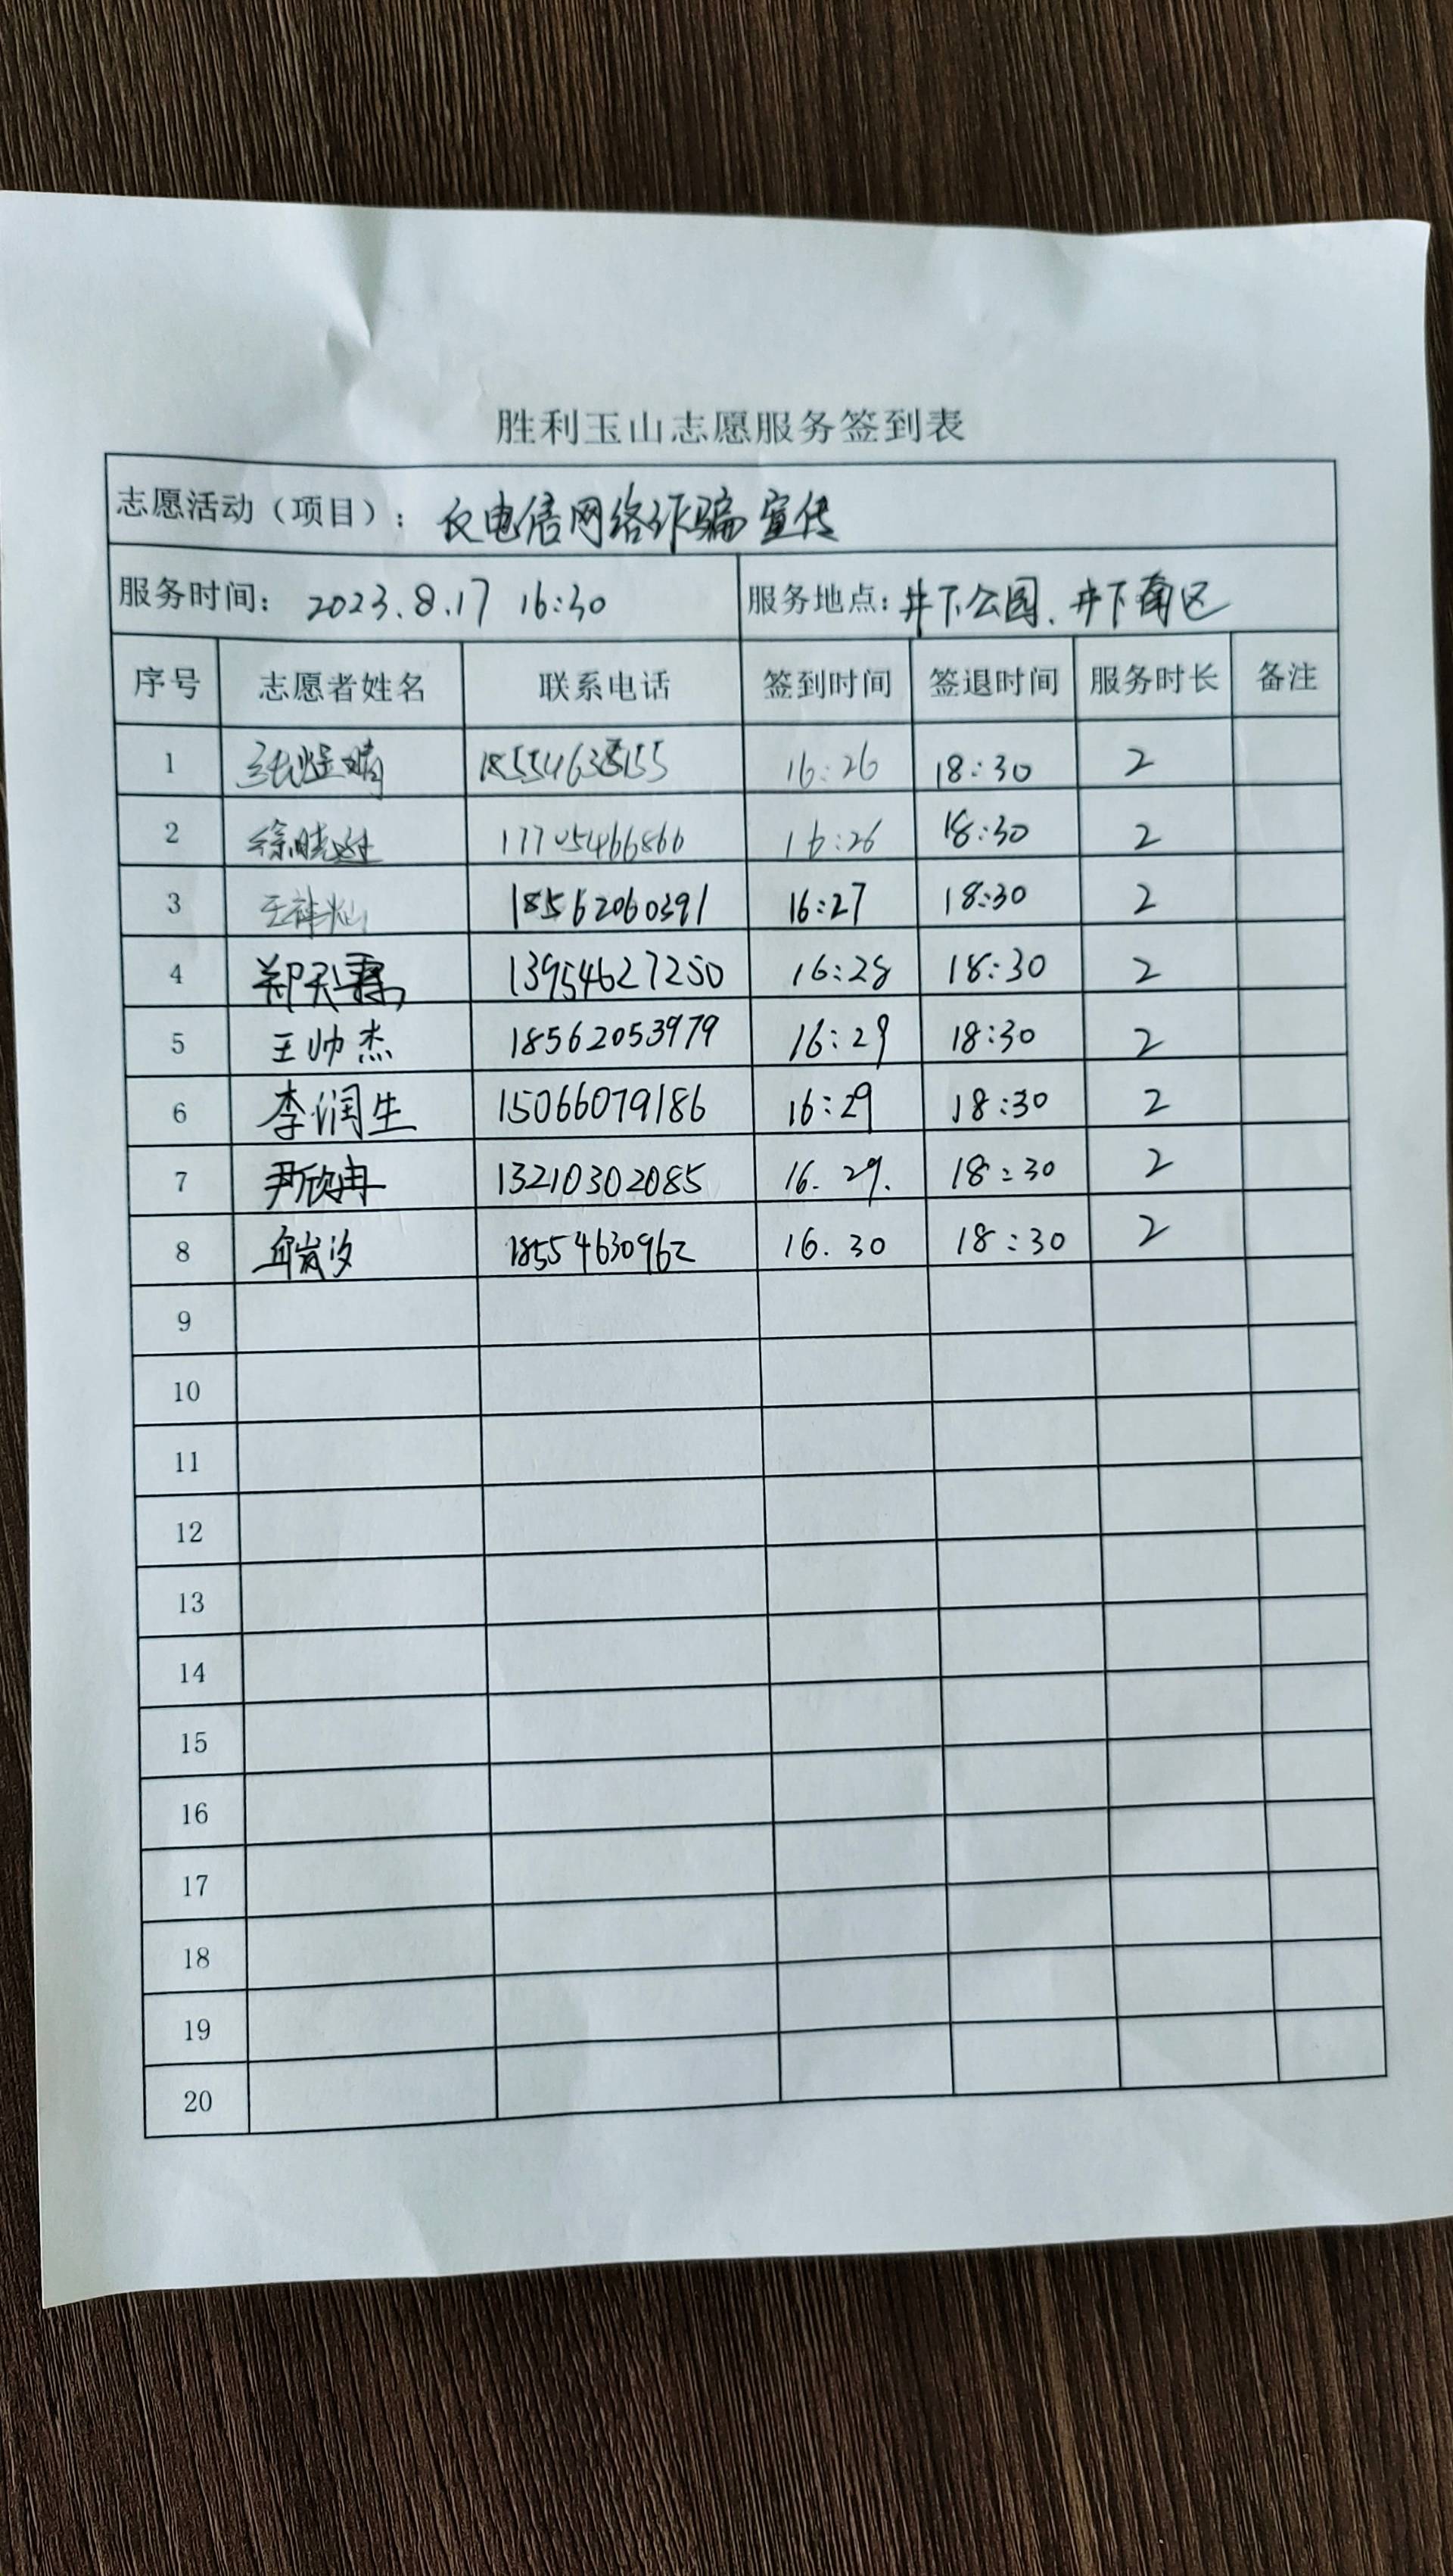 胜利玉山志愿服务签到表
志愿活动（项目）：反电信网络诈骗宣传
服务时间：2023.8.17 16:30 服务地点：井下公园、井下南区
序号 志愿者姓名 联系电话 签到时间 签退时间 服务时长 备注
1 16:26 18:30 2
2 徐晓 17705466866 16:26 18:30 2
3 王 18562060391 16:27 18:30 2
4 郑天霖 13954627250 16:28 18:30 2
5 王帅杰 18562053979 16:29 18:30 2
6 李润生 15066079186 16:29 18:30 2
7 尹欣冉 13210302085 16.29. 18:30 2
8 18554630962 16.30 18:30 2
9
10
11
12
13
14
15
16
17
18
19
20